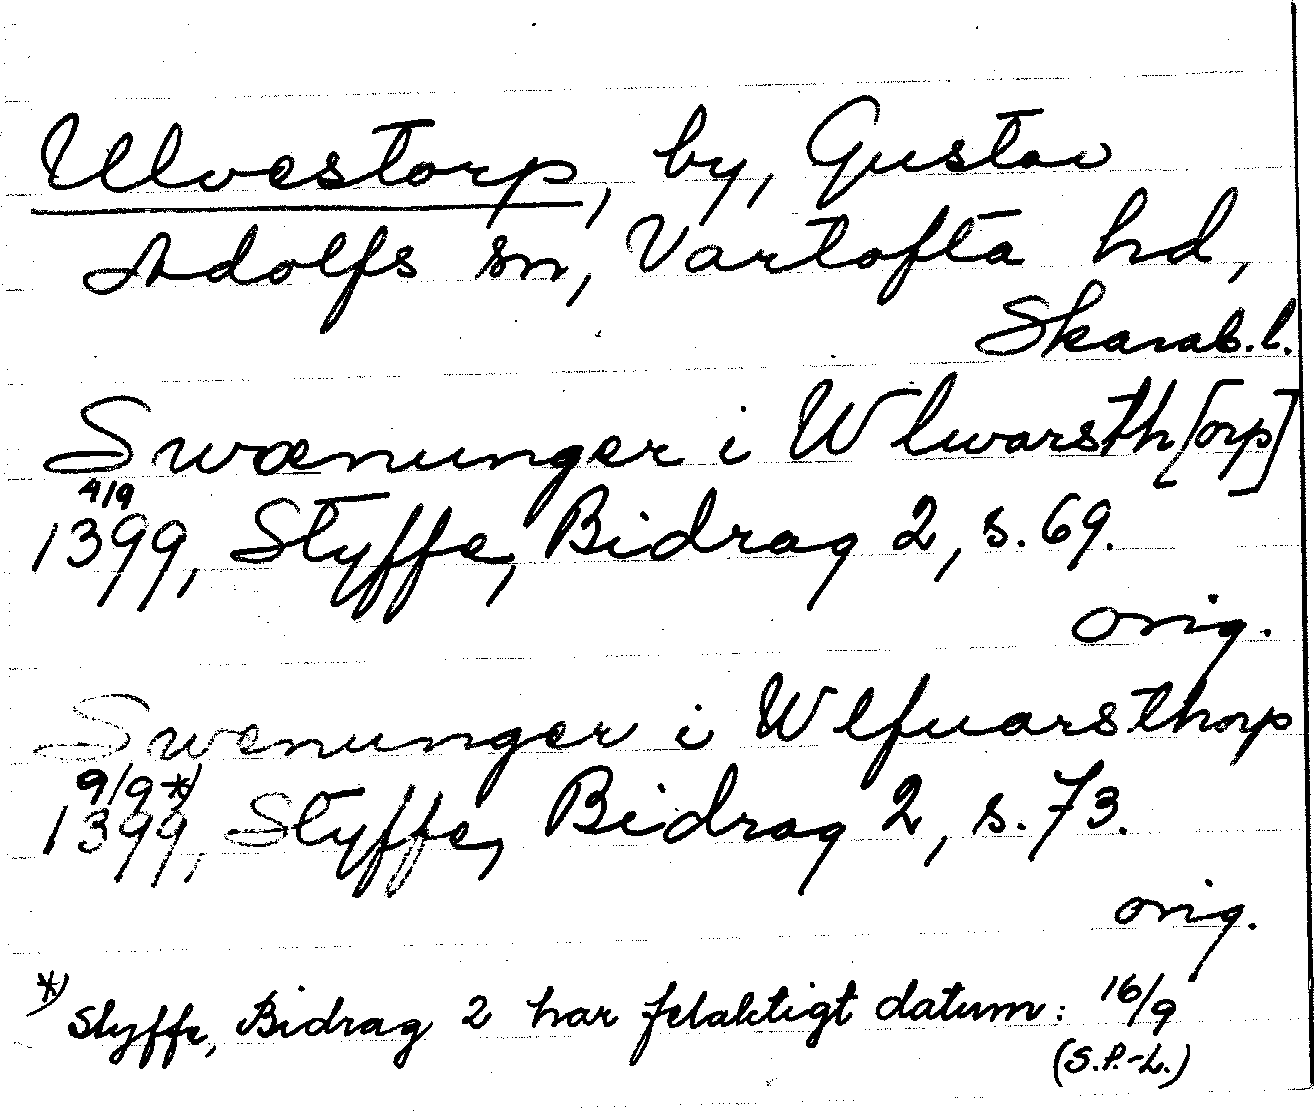 Ulvestorp, by, Gustav
Adolfs sn, Vartofta hd,
Skarab. l.
Swænunger i Wlwarsth[orp]
4/9
1399, Styffe, Bidrag 2, s. 69.
orig.
Swenunger i Wlfuarsthorp
9/9*)
1399, Styffe, Bidrag 2, s. 73.
orig.
*) Styffe, Bidrag 2 har felaktigt datum: 16/9
(S.P.-L.)